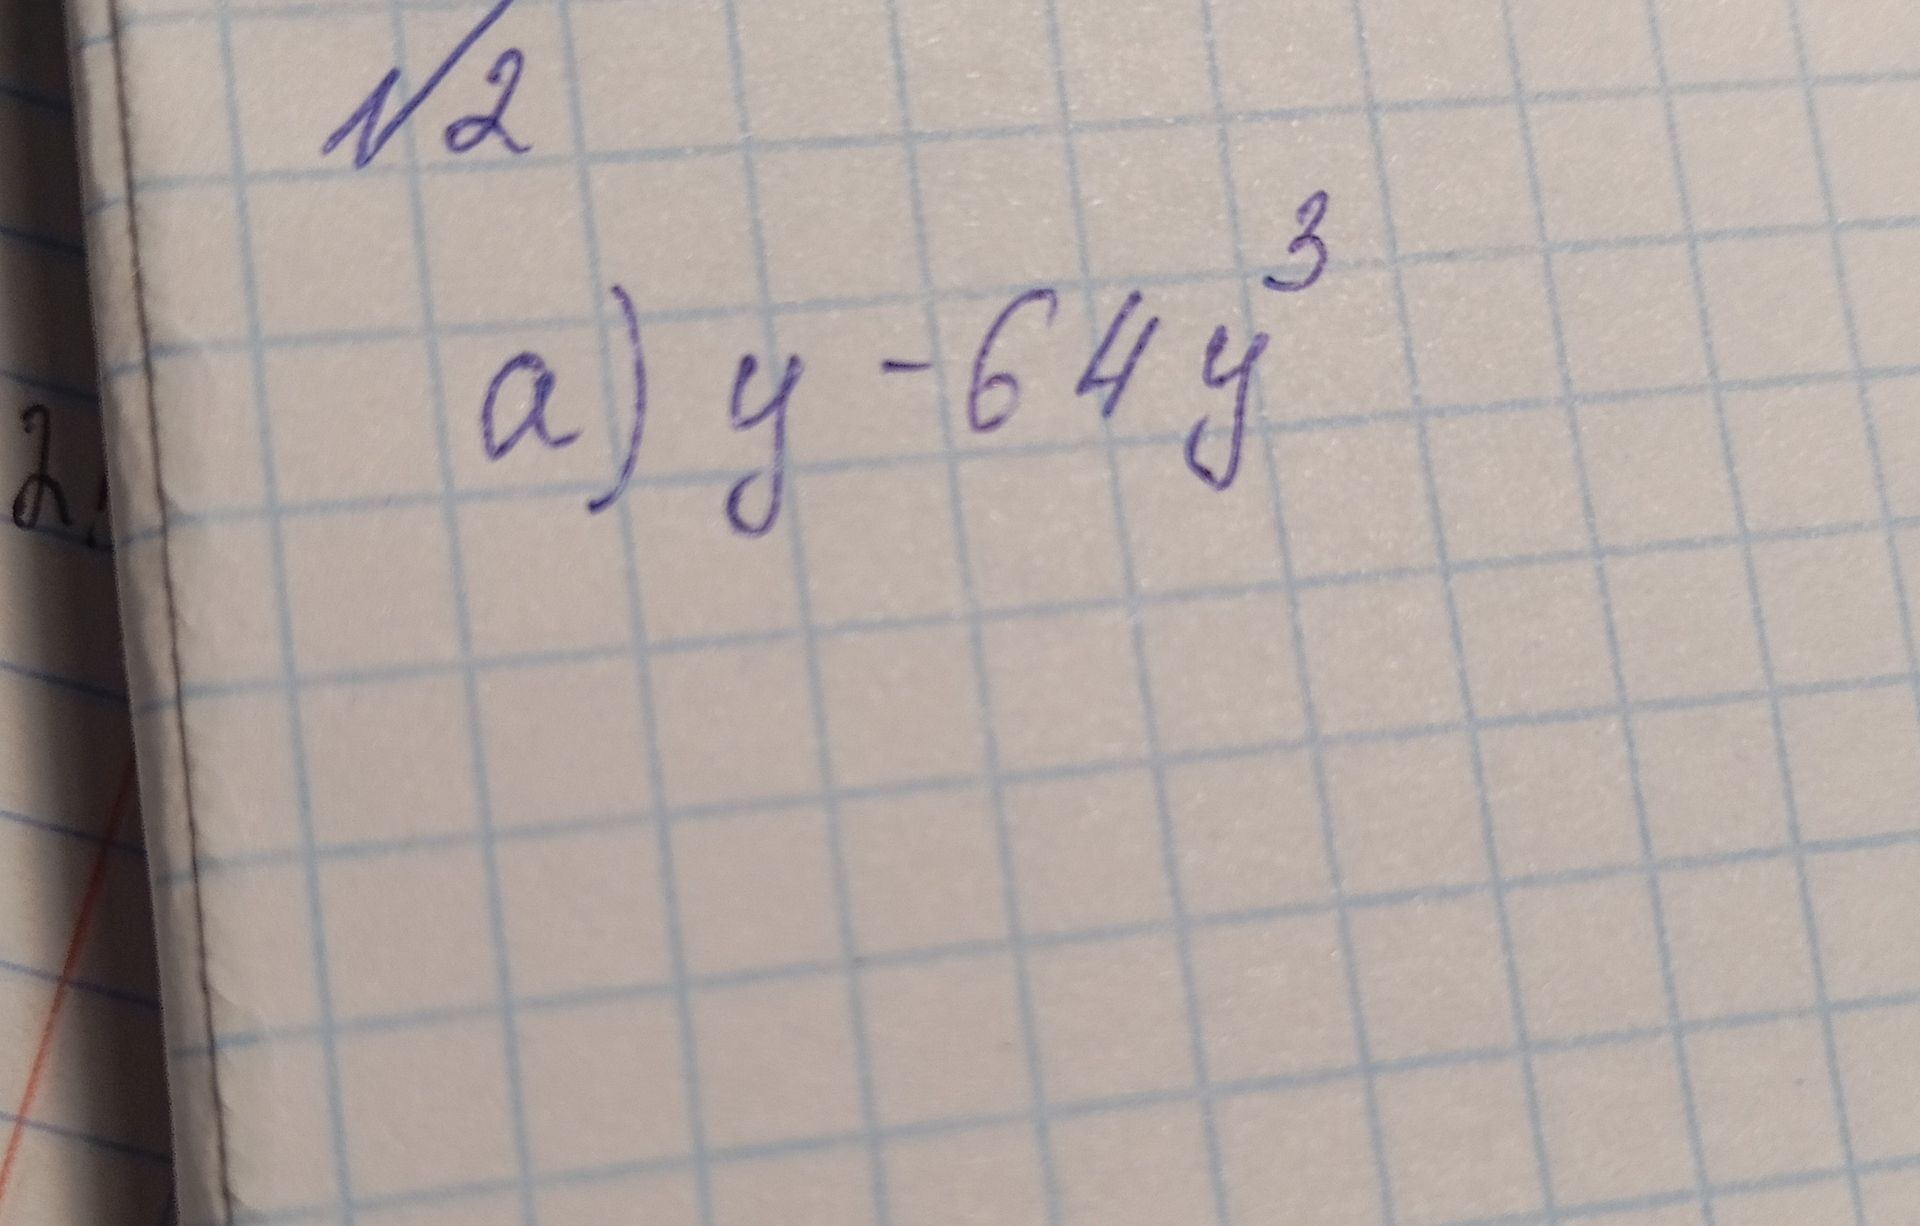 №2
а) y - 64y³
2.